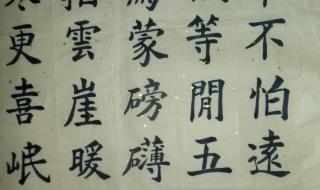 不怕遠
等閒五
蒙磅礴
雲崖暖
更喜岷